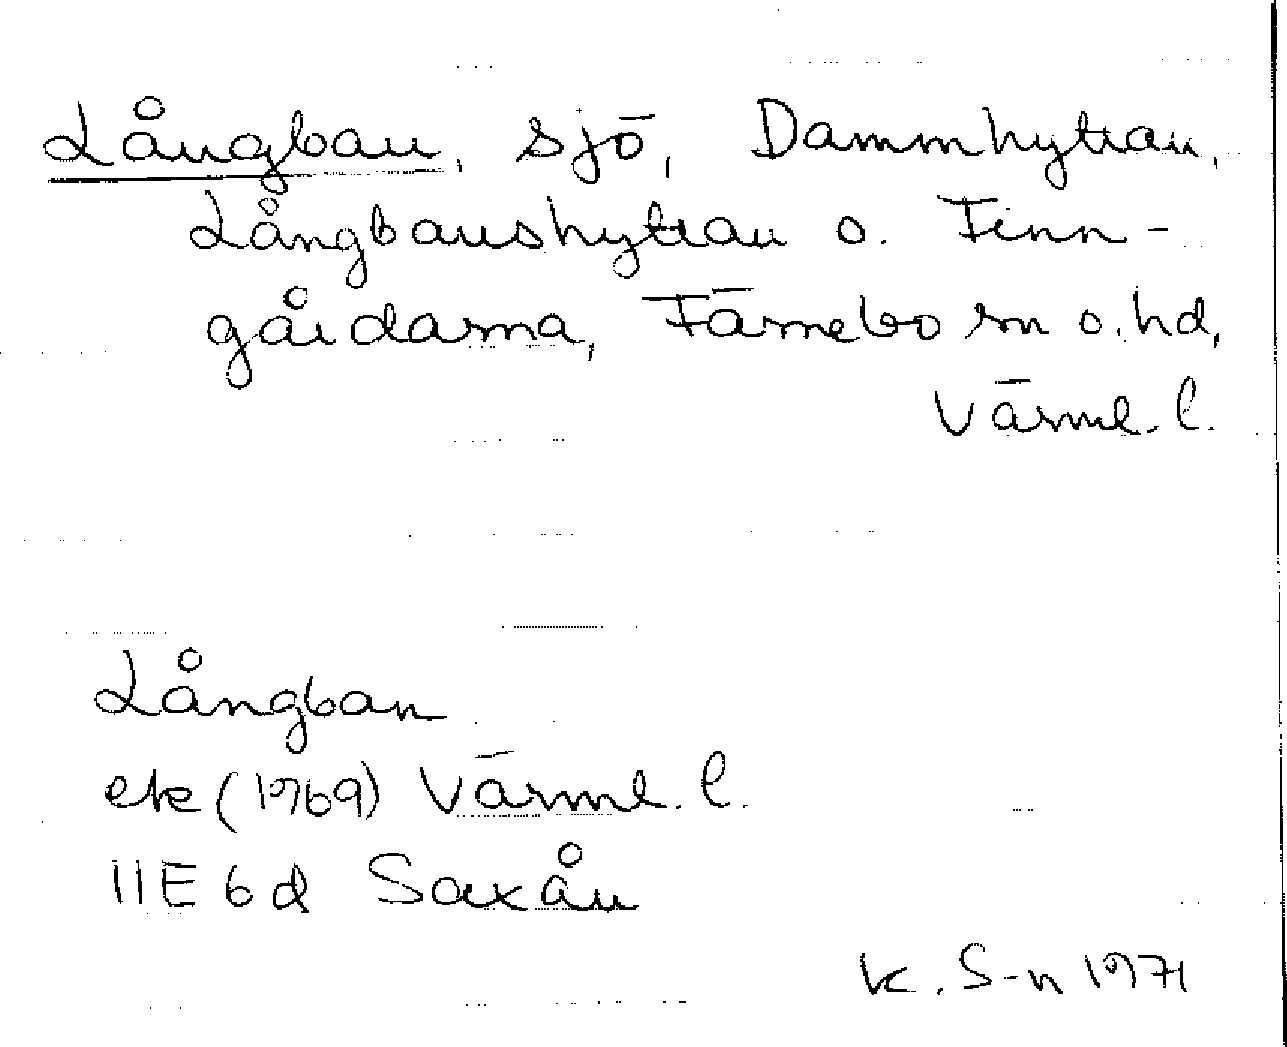 Långban, sjö, Dammhyttan,
Långbanshyttan o. Finn-
gårdarna, Färnebo sn o. hd,
Värml. l.
Långban
ek (1969) Värml. l.
11E 6d Saxån
K. S-n 1971